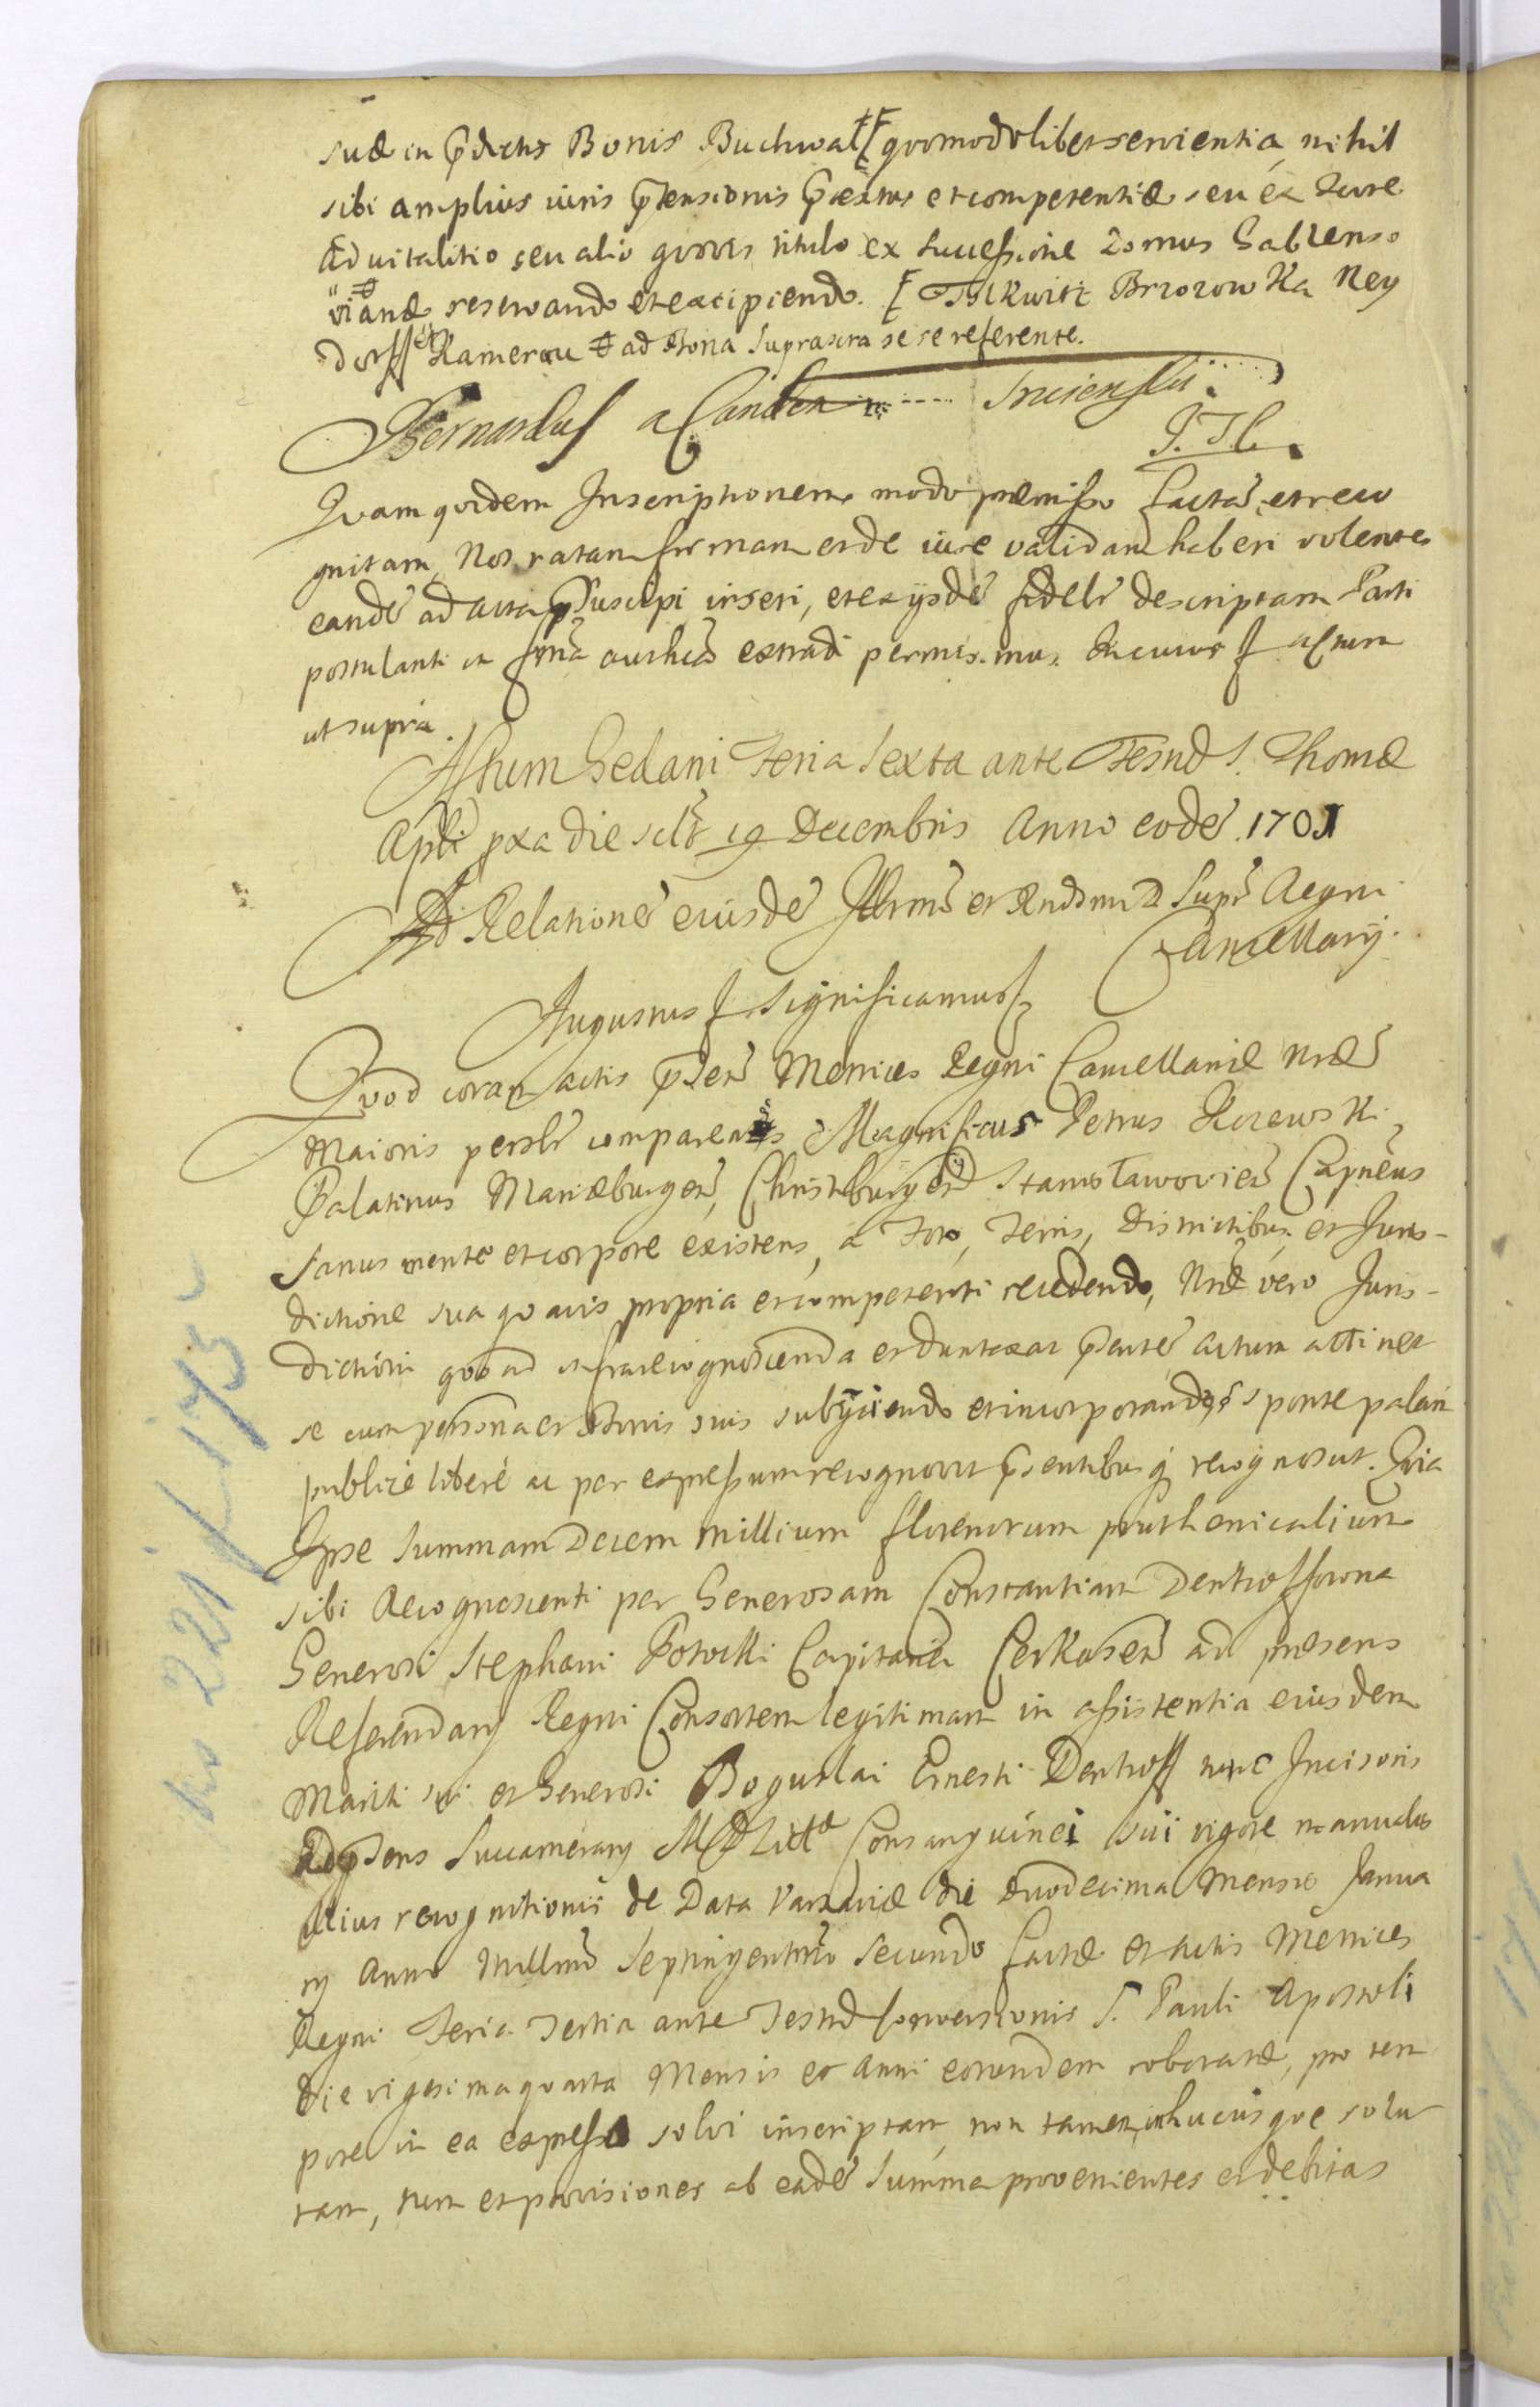 suæ in prdictis Bonis Buchwalt [ quomodolibet servientia, nihil
sibi amplius iuris prtensionis prtextus et competentiæ seu ex Iure
Advitalitio seu alio quovis titulo ex successione Domus Gablenso
vianæ reservando et excipiendo. [ Tilkwitz Brzozowka Ney
dorff et Kamerau ad Bona suprascra se se referente.
Bernardus a Canden Incienski
P. Tl.
Quam quidem Inscriptionem modo præmisso factã et reco
gnitam, Nos ratam firmam et de iure validam haberi volentes
eandẽ ad acta pr suscipi inseri, et ex ijsdẽ fidelr descriptam Parti
postulanti in formã authcã extradi permisimus. In cuius f actum
ut supra.
Actum Gedani Feria Sexta ante Festũ S. Thomæ
Apli pxa die sclt 19 Decembris Anno eodẽ 1701
Ad Relationẽ eiusdẽ Illrmi et Rndsmi D Supr Regni
Cancellarij.
Augustus f significamus f
Quod coram actis prsen Metrices Regni Cancellariæ Nræ
Maioris persolr comparens Magnificus Petrus Kczewski
Palatinus Mariæburgen, Christburgen Stanisławovien Capneus
sanus mente et corpore existens, a Foro, Terris, Districtibus et Juris-
dictione sua quavis propria et competenti recedendo, Nræ vero Juris-
dictioni quoad infra recognoscenda et duntaxat prsentẽ actum attinet
se cum persona et Bonis suis subijciendo et incorporando, sponte palam
publice libere ac per expressum recognovit prsentibusq recognoscit. Quia
Ipse Summam Decem Millium florenorum pruthenicalium
sibi Recognoscenti per Generosam Constantiam Denhoffowna
Generosi Stephani Potocki Capitanei Cerkasen ad præsens
Referendarij Regni Consortem legitimam in assistentia eiusdem
Mariti sui et Generosi Boguslai Ernesti Denhoff tunc Incisoris
ad prsens Succamerarij M D Littæ Consanguinei sui vigore manualis
illius recognitionis de Data Varsaviæ die duodecima Mensis Janua
rij Anno Millmo Septingentmo Secundo factæ et actis Metrices
Regni Feria Tertia ante Festũ Conversionis S. Pauli Apostoli
die vigesima quarta Mensis et Anni eorundem roboratæ, pro tem
pore in ea expresso solvi inscriptam, non tamen inhucusque solu
tam, tum et provisiones ab eadẽ Summa provenientes et debitas
No 221 f 175 v